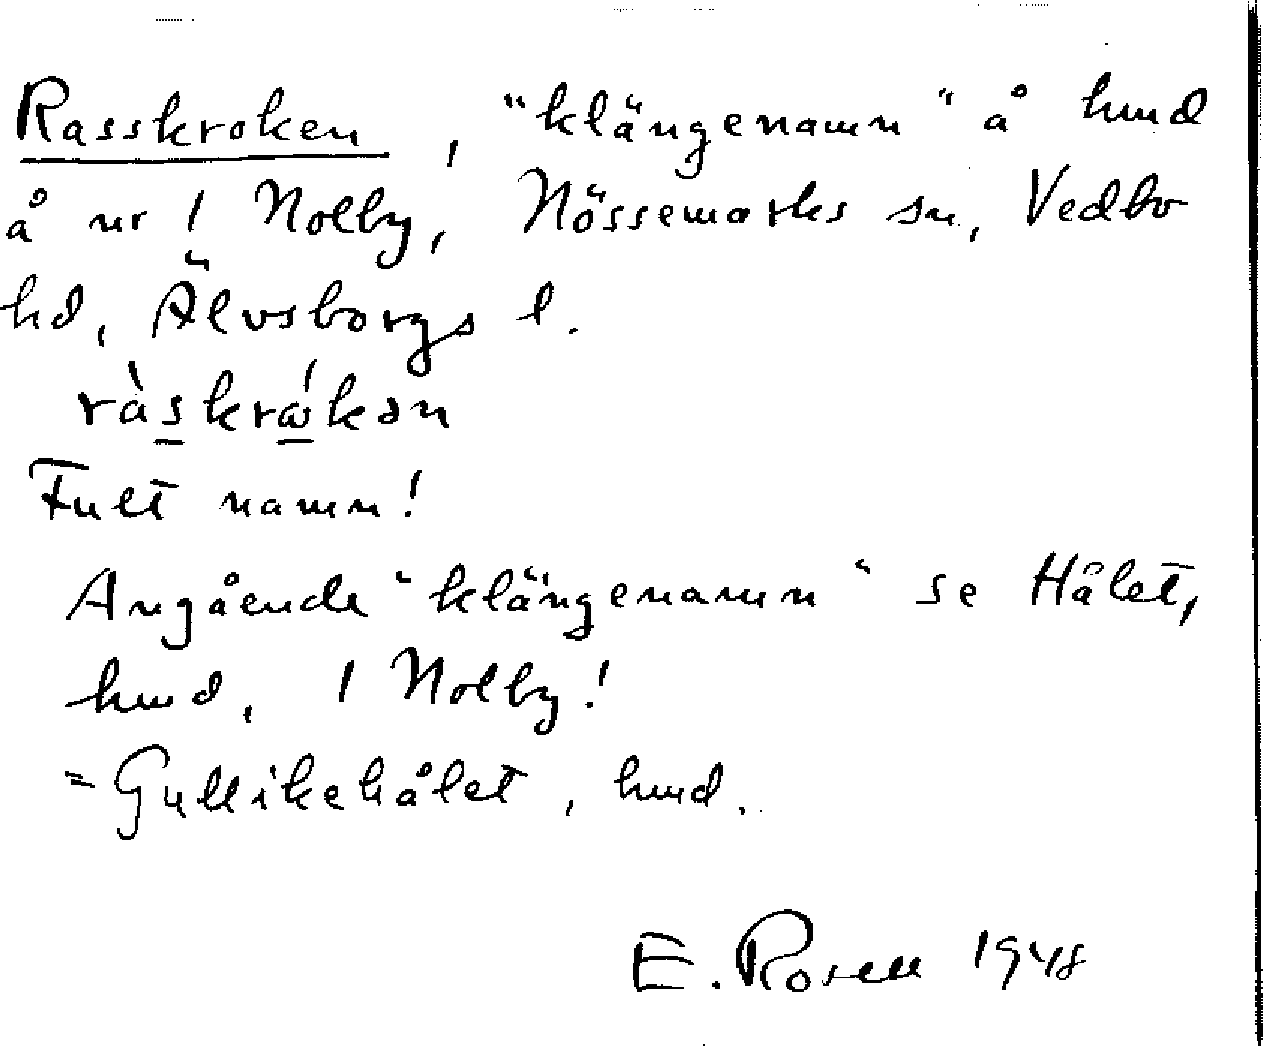 Rasskroken, "klängenamn" å hmd
å nr 1 Nolby, Nössemarks sn, Vedbo
hd, Älvsborgs l.
ràskrǻkən
Fult namn!
Angående "klängenamn" se Hålet,
hmd, 1 Nolby!
= Gullikehålet, hmd.
E. Rosell 1948